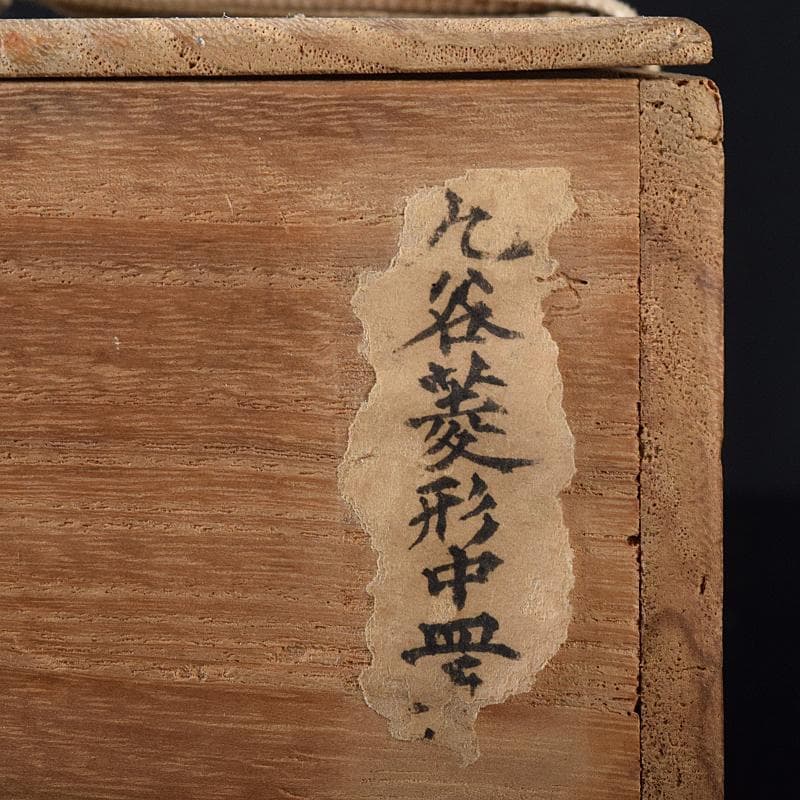 九谷菱形中皿